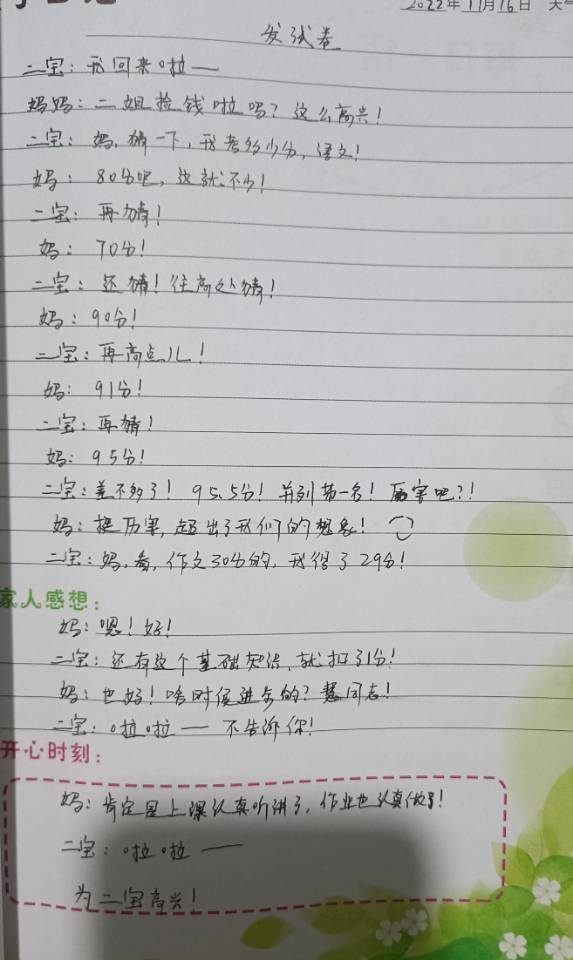 2022年11月16日 天
发试卷
二宝：我回来啦——
妈妈：二姐捡钱啦吗？这么高兴！
二宝：妈，猜一下，我考多少分，语文！
妈：80分吧，这就不少！
二宝：再猜！
妈：70分！
二宝：还猜！往高处猜！
妈：90分！
二宝：再高点儿！
妈：91分！
二宝：再猜！
妈：95分！
二宝：差不多了！95.5分！并列第一名！厉害吧？！
妈：挺厉害，超出了我们的想象！
二宝：妈，看，作文30分的，我得了29分！
家人感想：
妈：嗯！好！
二宝：还有这个基础知识，就扣了1分！
妈：也好！啥时候进步的？慧同志！
二宝：啦啦——不告诉你！
开心时刻：
妈：肯定是上课认真听讲了，作业也认真做了！
二宝：啦啦——
为二宝高兴！